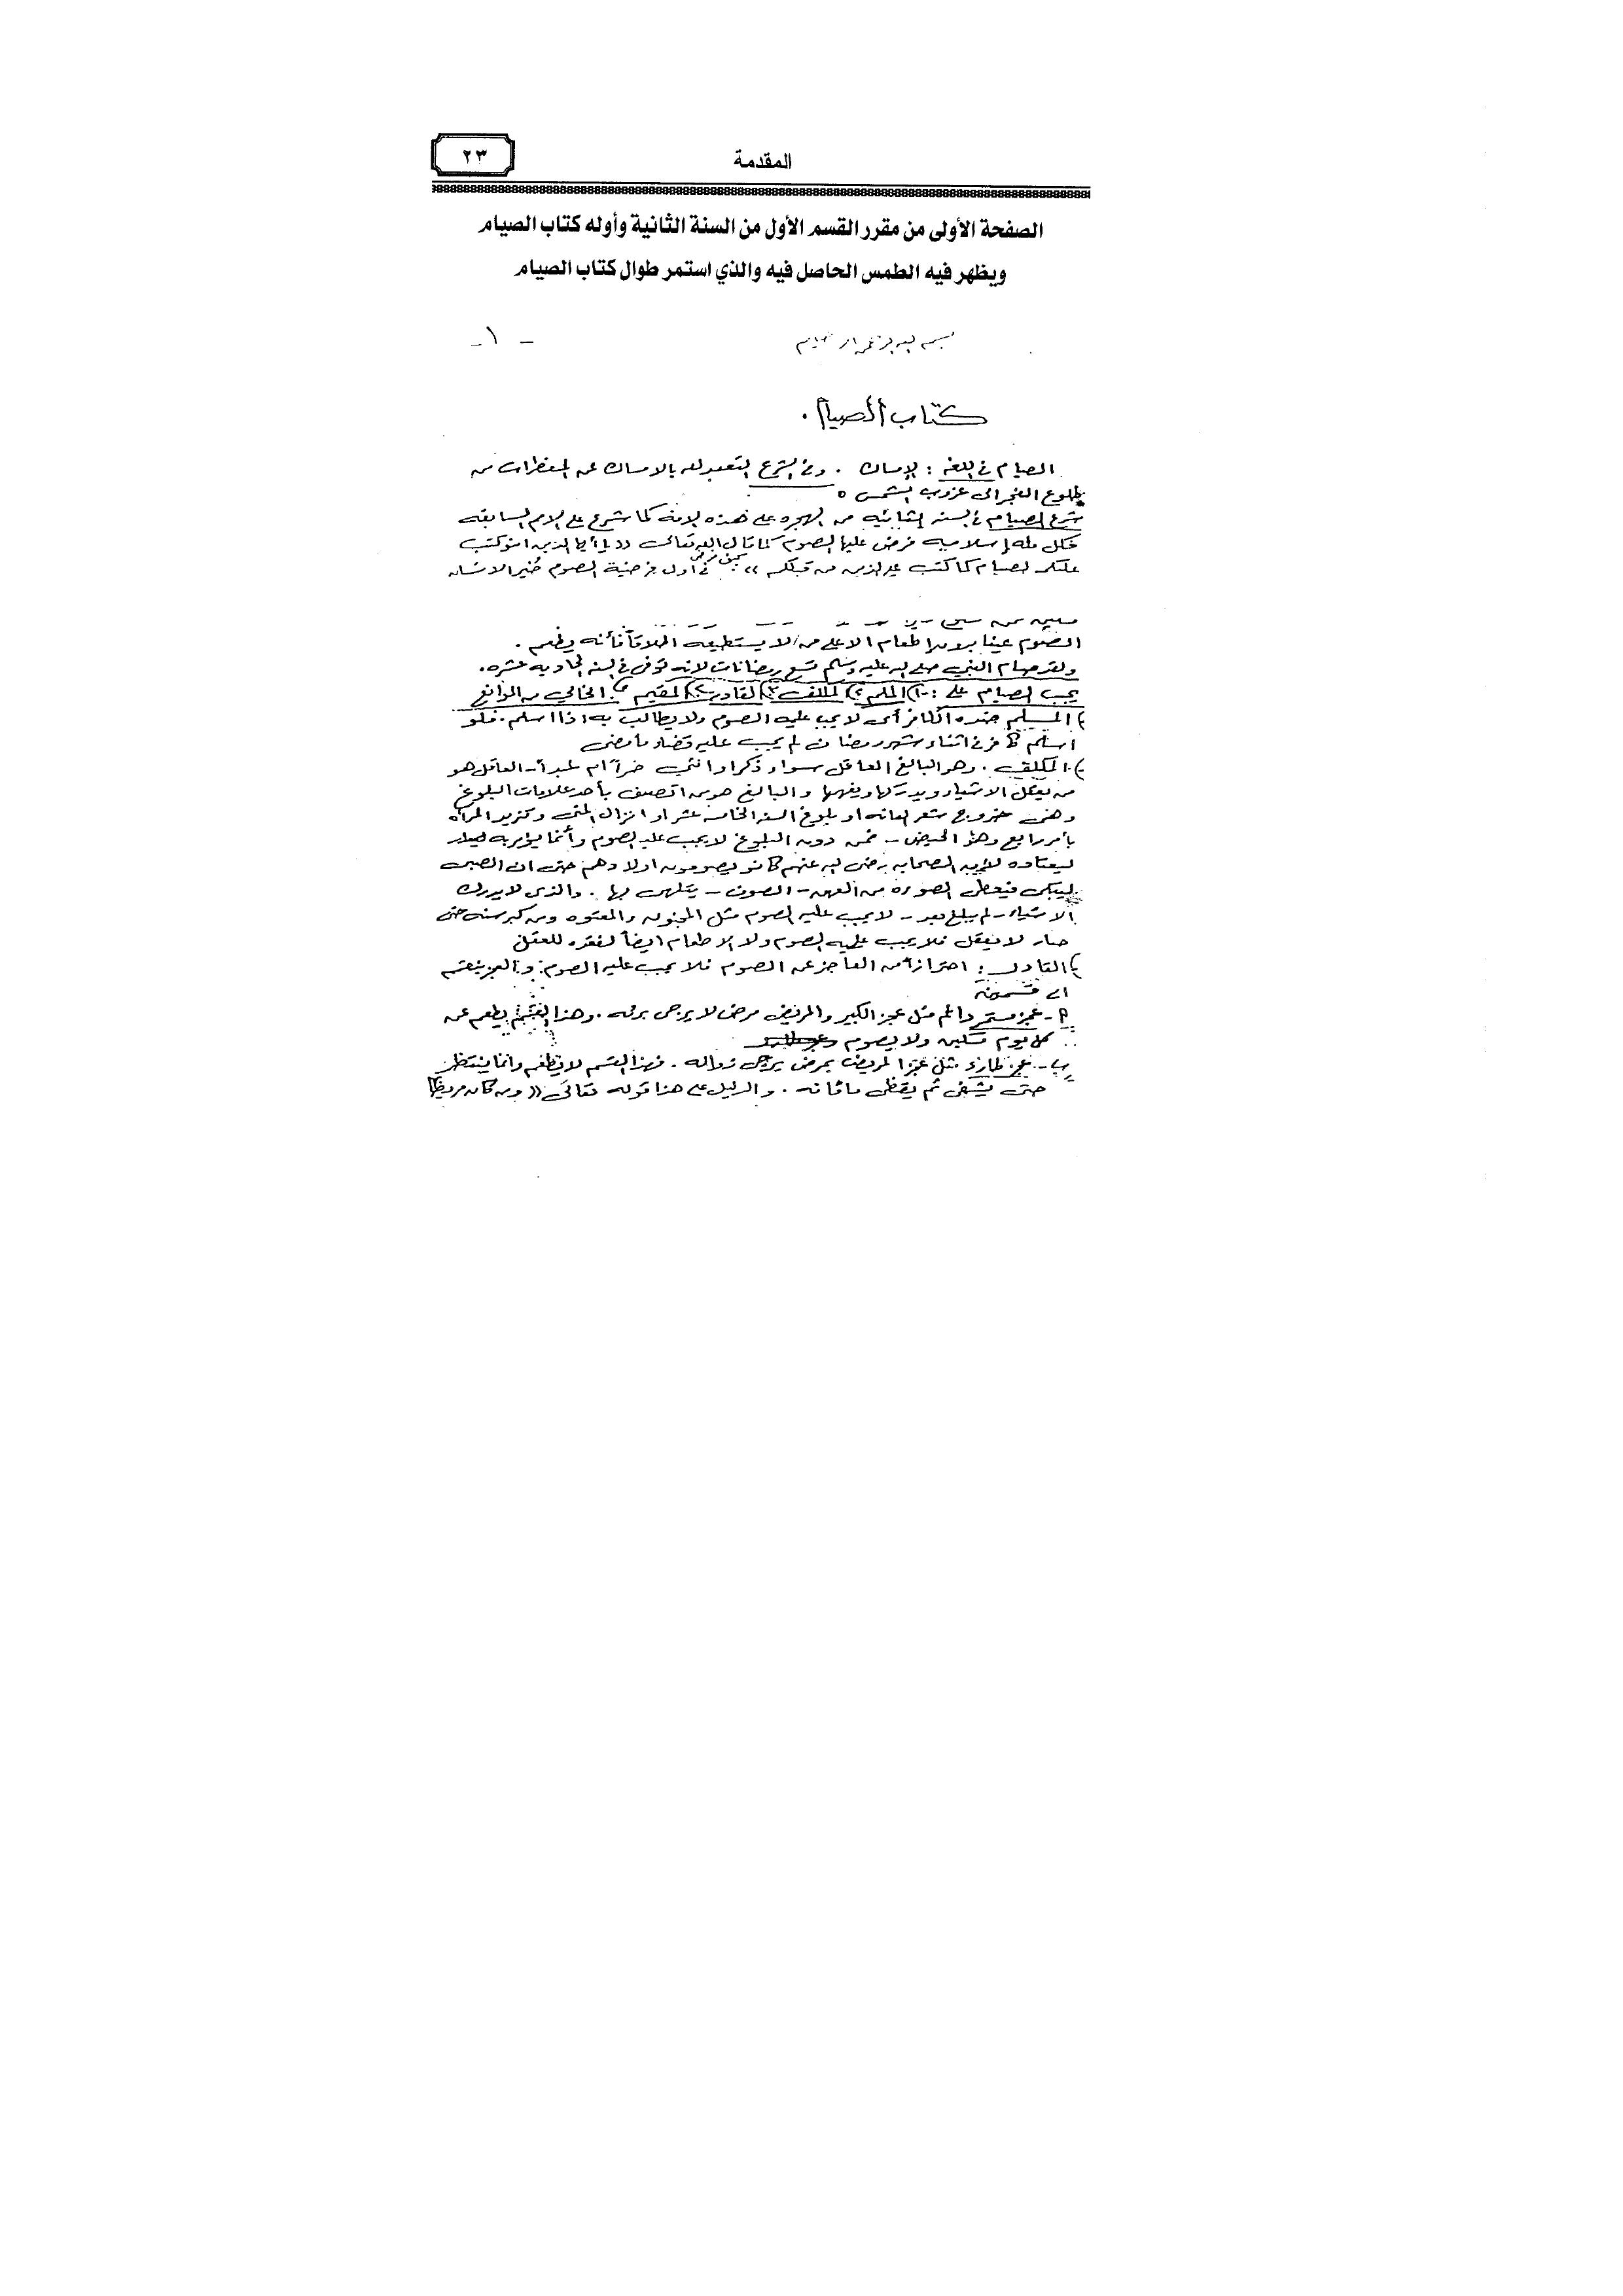 المقدمة
٢٣
الصفحة الأولى من مقرر القسم الأول من السنة الثانية وأوله كتاب الصيام
ويظهر فيه الطمس الحاصل فيه والذي استمر طوال كتاب الصيام
- ١ -
كتاب الصيام .
الصيام في اللغه : الإمساك . وفي الشرع التعبد لله بالامساك عن المفطرات من
طلوع الفجر الى غروب الشمس ٥
شرع الصيام في السنه الثانيه من الهجره على هذه الامه كما شرع على الامم السابقه
فكل مله إسلاميه فرض عليها الصوم كما قال الله تعالى (( يا أيها الذين امنو كتب
عليكم الصيام كما كتب على الذين من قبلكم )) في اول فرضية الصوم خُير الانسان
الصوم عينا بدون اطعام الا على من لا يستطيعه اطلاقاً فأنه يطعم .
ولقد صام النبي صلى الله عليه وسلم تسع رمضانات لانه توفى في السنه الحاديه عشره .
يجب الصيام على : ١) المسلم ٢) المكلف ٣) القادر ٤) المقيم ٥) الخالي من الموانع
١) المسلم ضده الكافر أى لا يجب عليه الصوم ولا يطالب به اذا اسلم . فلو
اسلم كافر في اثناء شهر رمضان لم يجب عليه قضاء ما مضى
٢) المكلف . وهو البالغ العاقل سواء ذكراً وانثى حراً ام عبداً - العاقل هو
من يعقل الاشياء ويدركها ويفهمها والبالغ هو من اتصف بأحد علامات البلوغ
وهي خروج شعر العانه او بلوغ السنه الخامسه عشر او انزال المنى وتزيد المرأه
بأمر رابع وهو الحيض - فمن دون البلوغ لا يجب عليه الصوم وأنما يؤمر به
ليعتاده لأن الصحابه رضى الله عنهم كانو يصومون اولادهم حتى ان الصبى
ليبكى فيعطى الصوره من العهن - الصوف - يتلهى بها . والذى لا يدرك
الاشياء - لم يبلغ بعد - لا يجب عليه الصوم مثل المجنون والمعتوه ومن كبر سنه حتى
صار لا يعقل فلا يجب عليه الصوم ولا الاطعام ايضاً لفقده للعقل
٣) القادر : احترازاً من العاجز عن الصوم فلا يجب عليه الصوم . و العجز ينقسم
الى قسمين
أ - عجز مستمر دائم مثل عجز الكبير والمريض مرض لا يرجى برئه . وهذا القسم يطعم عن
كل يوم مسكين ولا يصوم
ب - عجز طارئ مثل عجز المريض بمرض يرجى زواله . فهذا القسم لا يطعم وانما ينتظر
حتى يشفى ثم يقضى ما فاته . والدليل على هذا قوله تعالى (( ومن كان مريضا